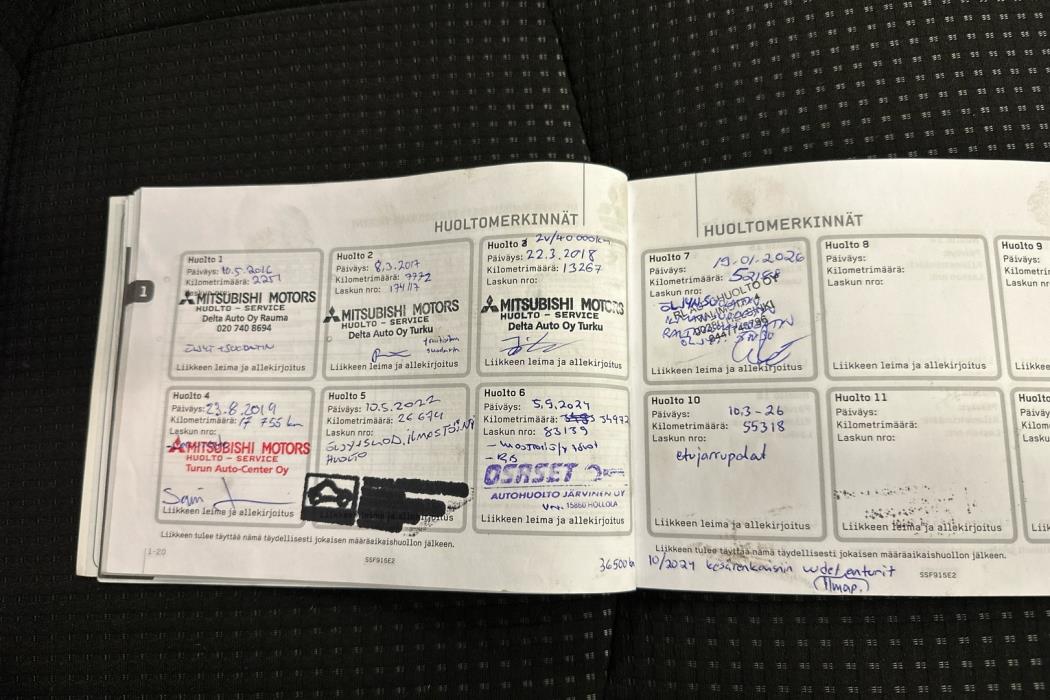 HUOLTOMERKINNÄT
1
Huolto 1
Päiväys: 10.5.2016
Kilometrimäärä: 2251
Laskun nro:
MITSUBISHI MOTORS
HUOLTO - SERVICE
Delta Auto Oy Rauma
020 740 8694
Liikkeen leima ja allekirjoitus
Huolto 2
Päiväys: 8.3.2017
Kilometrimäärä: 7772
Laskun nro: 174117
MITSUBISHI MOTORS
HUOLTO - SERVICE
Delta Auto Oy Turku
Liikkeen leima ja allekirjoitus
Huolto 3 2v/40 000km
Päiväys: 22.3.2018
Kilometrimäärä: 13267
Laskun nro:
MITSUBISHI MOTORS
HUOLTO - SERVICE
Delta Auto Oy Turku
Liikkeen leima ja allekirjoitus
Huolto 4
Päiväys: 23.8.2019
Kilometrimäärä: 17 755 km
Laskun nro:
MITSUBISHI MOTORS
HUOLTO - SERVICE
Turun Auto-Center Oy
Liikkeen leima ja allekirjoitus
Huolto 5
Päiväys: 10.5.2022
Kilometrimäärä: 26 674
Laskun nro:
HUOLTO
Huolto 6
Päiväys: 5.9.2024
Kilometrimäärä: 34972
Laskun nro: 83139
OSASET
AUTOHUOLTO JÄRVINEN OY
15860 HOLLOLA
Liikkeen leima ja allekirjoitus
Liikkeen tulee täyttää nämä täydellisesti jokaisen määräaikaishuollon jälkeen.
1-20
SSF915E2
36500
HUOLTOMERKINNÄT
Huolto 7
19.01.2026
Päiväys:
Kilometrimäärä: 52188
Laskun nro:
Liikkeen leima ja allekirjoitus
Huolto 8
Päiväys:
Kilometrimäärä:
Laskun nro:
Liikkeen leima ja allekirjoitus
Huolto 9
Huolto 10
Päiväys: 10.3-26
Kilometrimäärä: 55318
Laskun nro:
etujarrupalat
Liikkeen leima ja allekirjoitus
Huolto 11
Päiväys:
Kilometrimäärä:
Laskun nro:
Liikkeen leima ja allekirjoitus
Liikkeen tulee täyttää nämä täydellisesti jokaisen määräaikaishuollon jälkeen.
10/2024 kesärenkaisiin uudet anturit
(Ilmap.)
SSF915E2